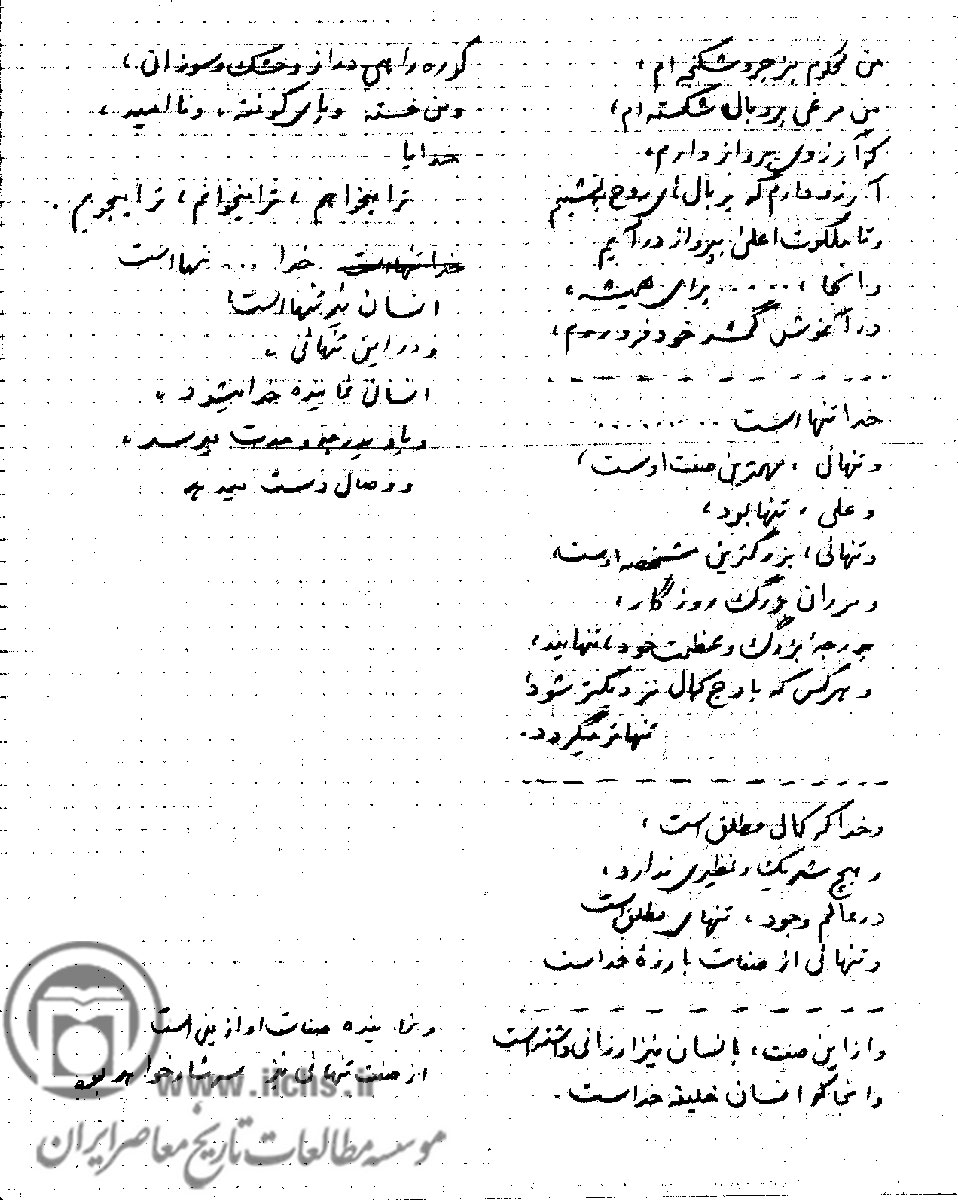 من محکوم بزجر و شکنجه ام،
من مرغی پر و بال شکسته ام،
که آرزوی پرواز دارم،
آرزو دارم که بر بالهای روح بنشینم
و تا ملکوت اعلی بپرواز درآیم
و آنجا ، ..... برای همیشه،
در آغوش گمشده خود فرو روم،
خدا تنها است ........
و تنهائی ، مهمترین صفت اوست،
و علی ، تنها بود،
و تنهائی، بزرگترین مشخصه اوست،
و مردان بزرگ روزگار،
بدرجۀ بزرگی و عظمت خود، تنهایند،
و هرکس که باوج کمال نزدیکتر شود،
تنهاتر میگردد.
و خدا که کمال مطلق است ،
و هیچ شریک و نظیری ندارد،
در عالم وجود ، تنهای مطلق است
و تنهائی از صفات بارزۀ خداست
و از این صفت، بانسان نیز ارزانی داشته است
و آنجا که انسان خلیفه خداست.
کوره راهی دراز و خشک و سوزان،
و من خسته و پای کوفته ، و ناامید ،
خدایا
ترا میخواهم ، ترا میخوانم ، ترا میجویم .
خدا تنها است خدا ... تنها است
انسان نیز تنها است
و در این تنهائی ،
انسان نماینده خدا میشود ،
و باو بدرجه وحدت میرسد ،
و وصال دست میدهد
و نماینده صفات او در زمین است
از صفت تنهائی نیز سرشار خواهد بود
www.iichs.ir
موسسه مطالعات تاریخ معاصر ایران